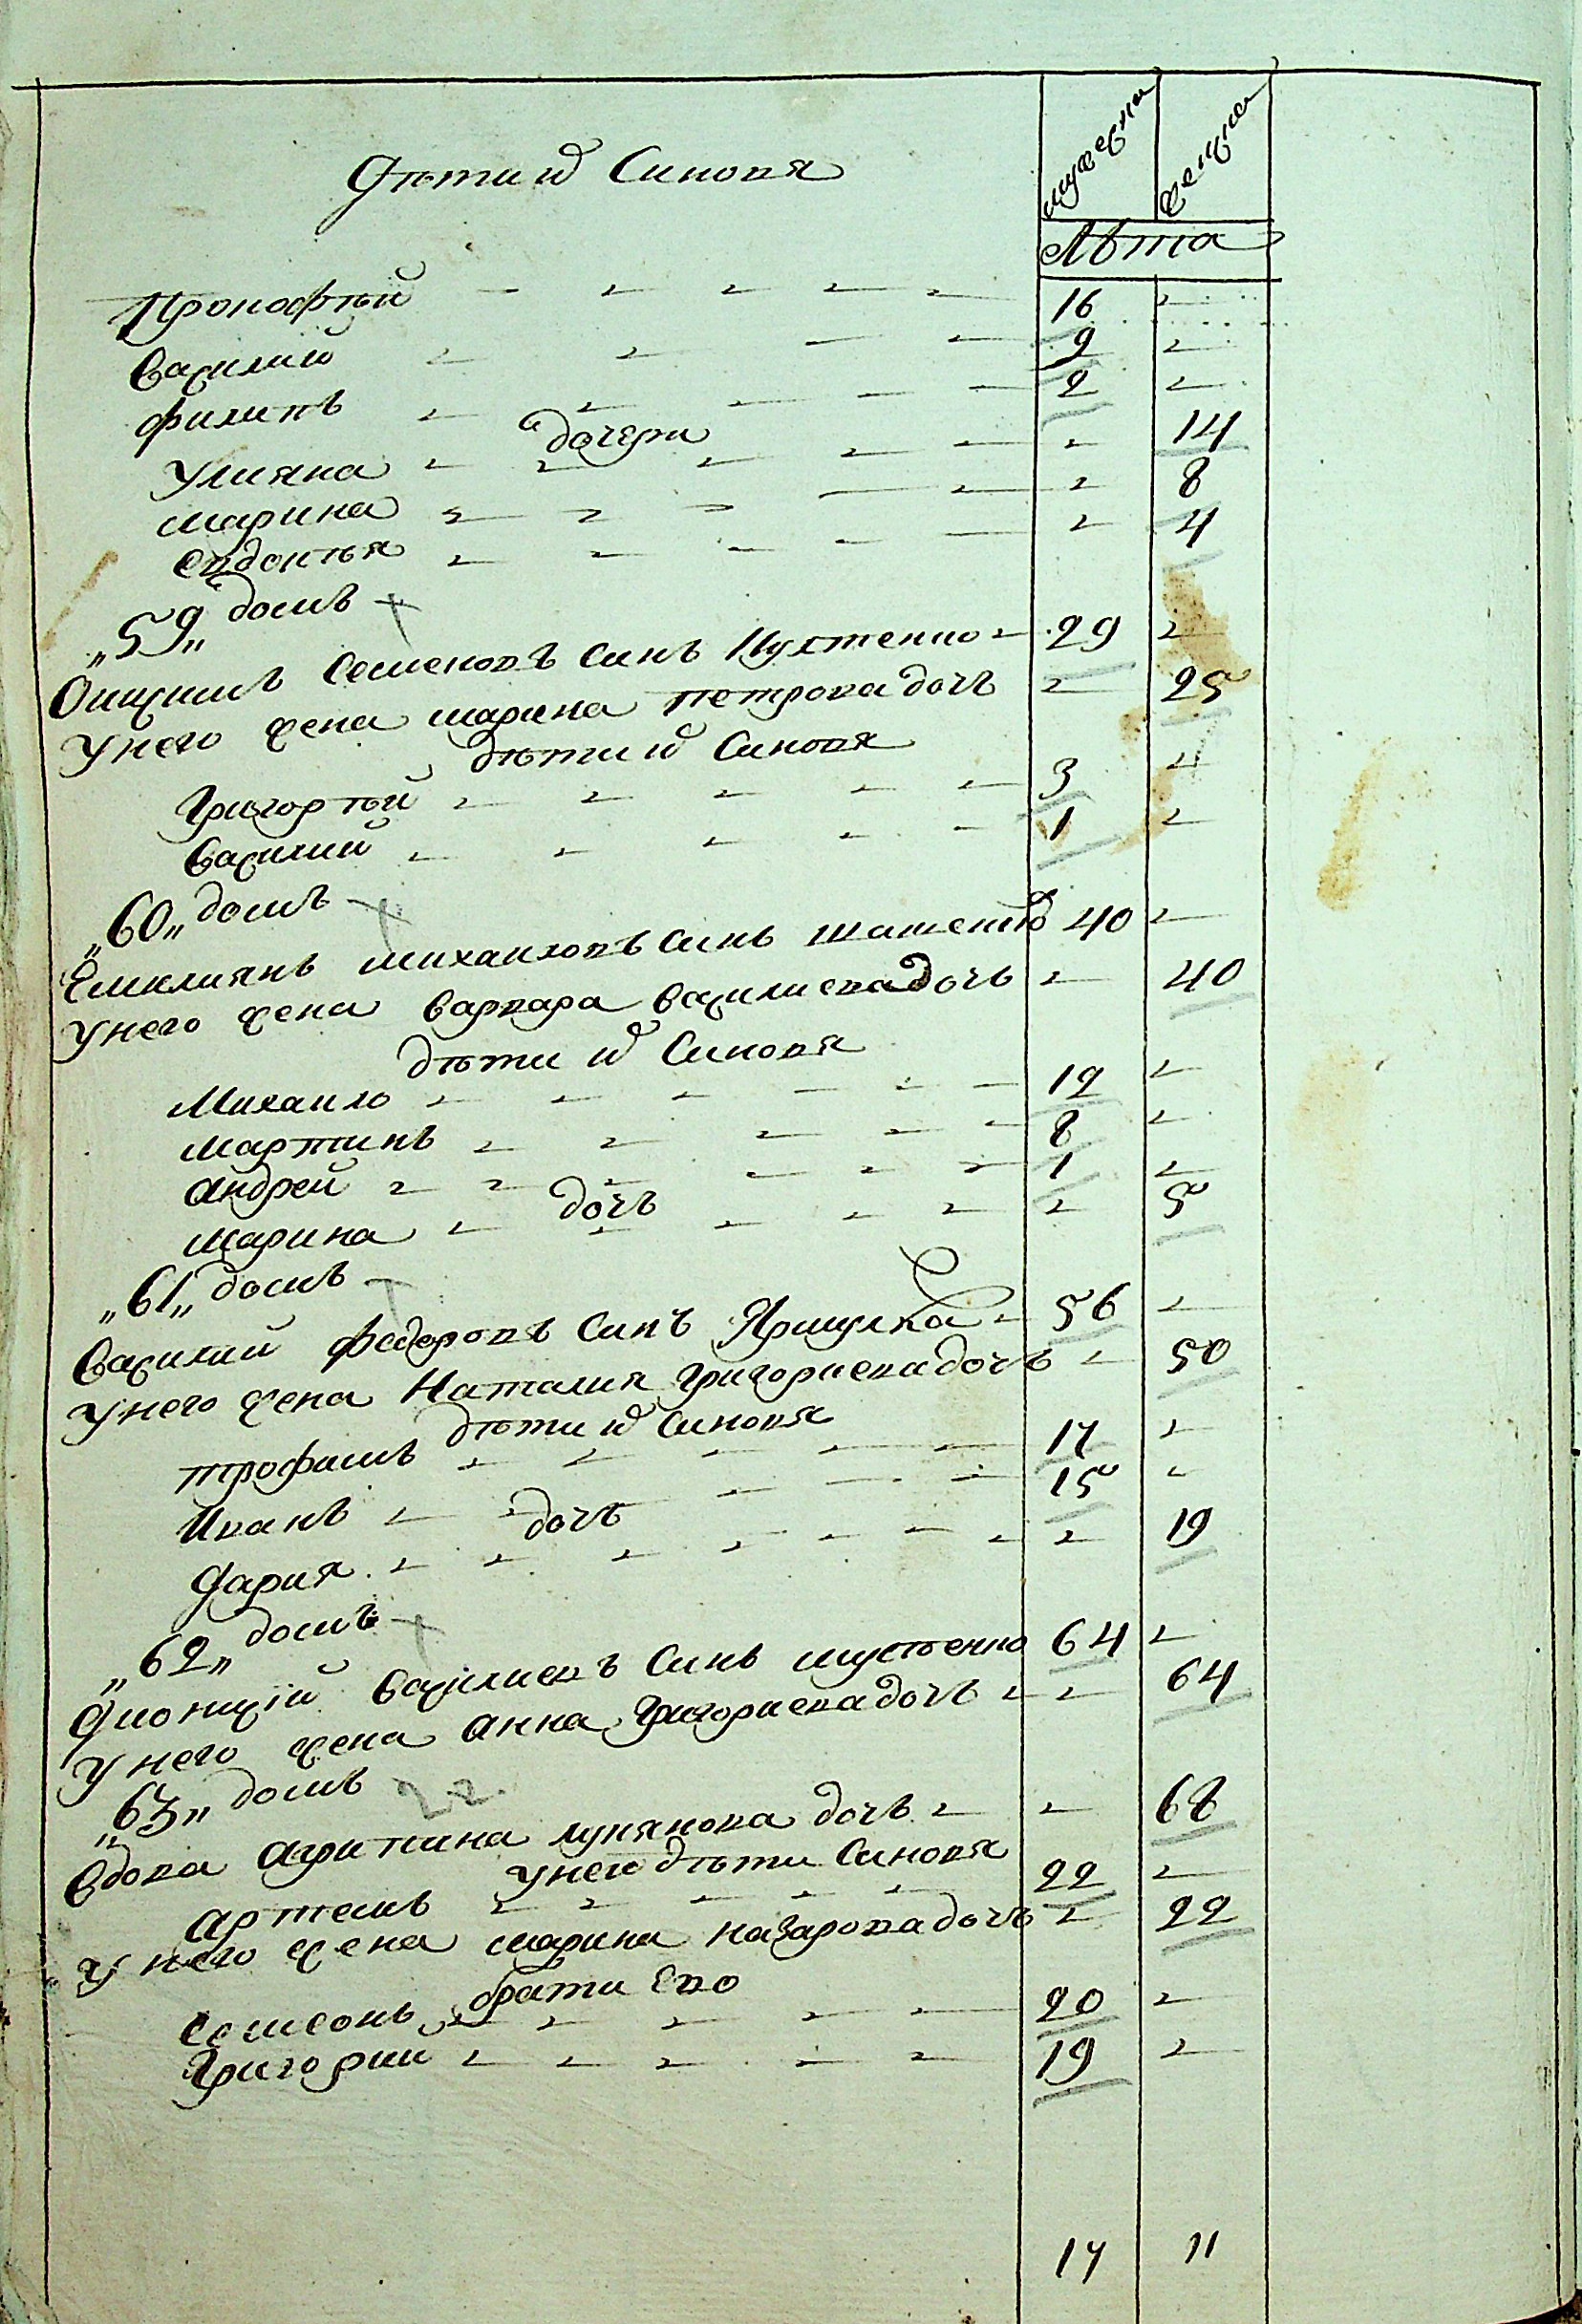 мужеска
женска
Дѣти и Синовя
Лѣта
Прокофѣй 16
Василий 9
Филипъ 2
дочери
Улияна 14
Марина 8
Евдокѣя 4
„59„ домъ
Онисимъ Семеновъ Синъ Пустенко 29
Унего жена Марина Петрова дочъ 25
дѣти и Синовя
Григорѣй 3
Василий 1
„60„ домъ
Емилиянъ Михаиловъ Синъ 40
Унего жена Варвара Василиева дочъ 40
дѣти и Синовя
Михаило 12
Мартинъ 8
Андрей 1
дочъ
Марина 5
„61„ домъ
Василий Федоровъ Синъ 56
Унего жена Наталия Григориева дочъ 50
дѣти и Синовя
Трофимъ 17
Иванъ 15
дочъ
Дария 19
„62„ домъ
Дионисїй Василиевъ Синъ 64
Унего жена Анна Григориева дочъ 64
„63„ домъ 22
Вдова Агрипина Лукянова дочъ 68
Унего дѣти Синовя
Артемъ 22
Унего жена Марина Назарова дочъ 22
брати Ево
Семсонъ 20
Григорий 19
17 11